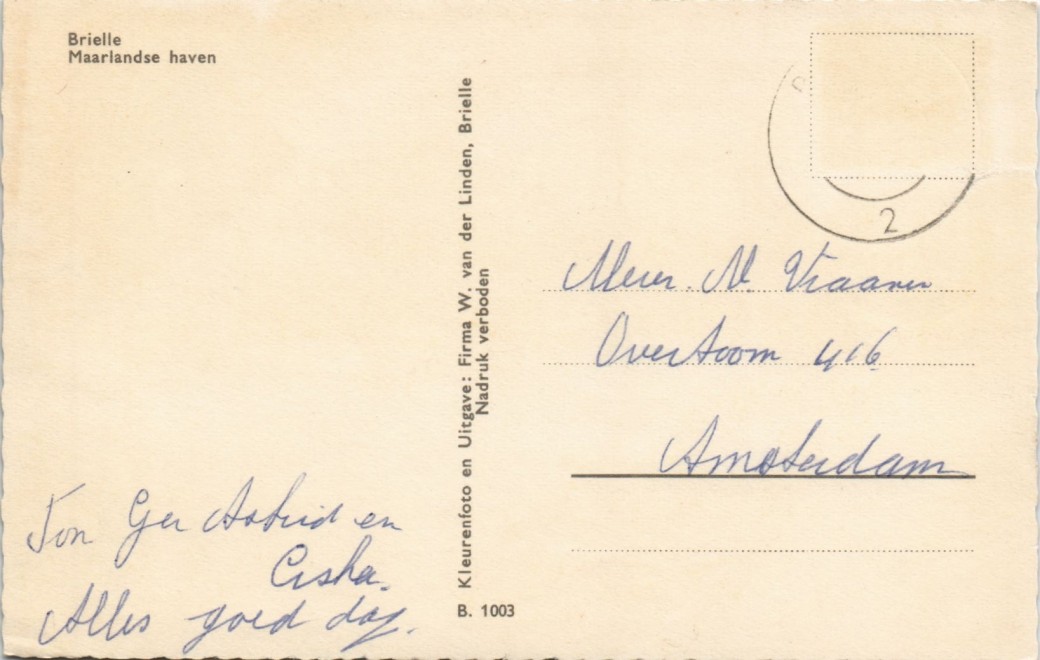 Brielle
Maarlandse haven
Ton Ger Astrid en
Ciska.
Alles goed dag.
Kleurenfoto en Uitgave: Firma W. van der Linden, Brielle
Nadruk verboden
B. 1003
2
Mevr. N. Vraanen
Overtoom 416
Amsterdam